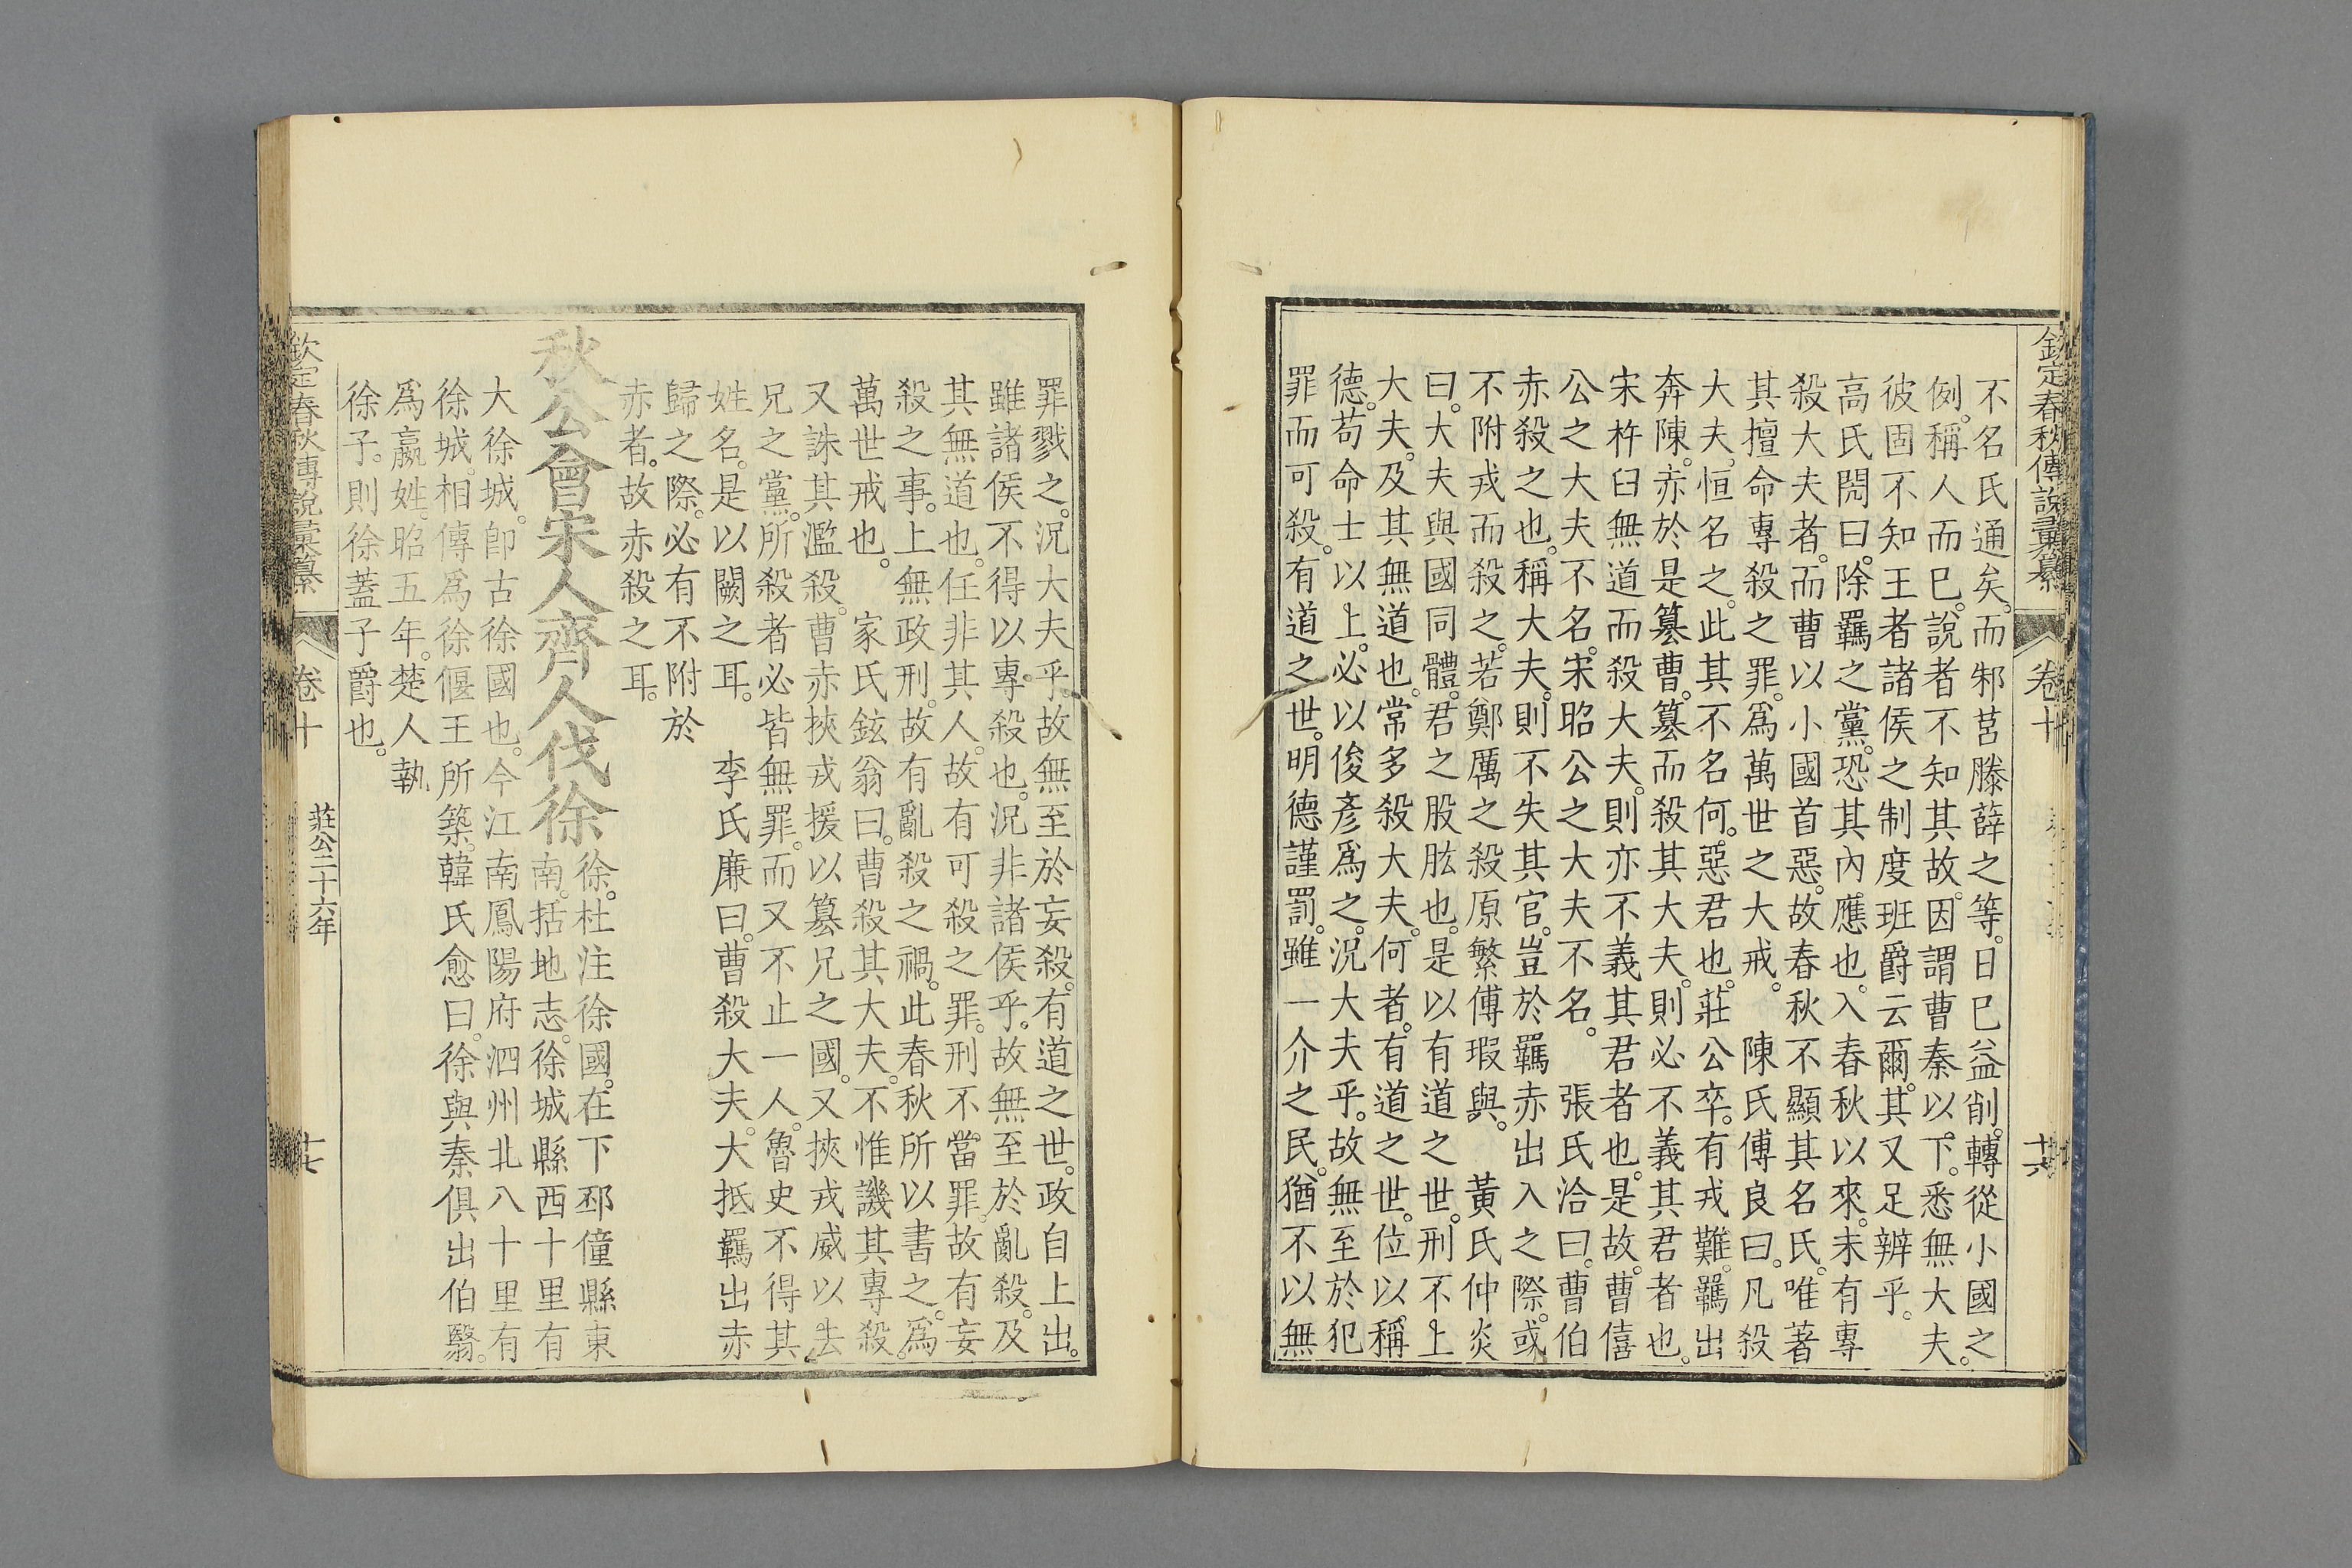 欽定春秋傳說彙纂 卷十 十六
不名氏通矣。而邾莒滕薛之等。日已益削。轉從小國之
例。稱人而已。說者不知其故。因謂曹秦以下。悉無大夫。
彼固不知王者諸侯之制度班爵云爾。其又足辨乎。
高氏閌曰。除羈之黨。恐其內應也。入春秋以來。未有專
殺大夫者。而曹以小國首惡。故春秋不顯其名氏。唯著
其擅命專殺之罪。爲萬世之大戒。 陳氏傅良曰。凡殺
大夫。恒名之。此其不名何。惡君也。莊公卒。有戎難。羈出
奔陳。赤於是篡曹。篡而殺其大夫。則必不義其君者也。
宋杵臼無道而殺大夫。則亦不義其君者也。是故曹僖
公之大夫不名。宋昭公之大夫不名。 張氏洽曰。曹伯
赤殺之也。稱大夫。則不失其官。豈於羈赤出入之際。或
不附戎而殺之。若鄭厲之殺原繁傅瑕與。 黃氏仲炎
曰。大夫與國同體。君之股肱也。是以有道之世。刑不上
大夫。及其無道也。常多殺大夫。何者。有道之世。位以稱
德。苟命士以上。必以俊彥爲之。況大夫乎。故無至於犯
罪而可殺。有道之世。明德謹罰。雖一介之民。猶不以無
罪戮之。況大夫乎。故無至於妄殺。有道之世。政自上出。
雖諸侯不得以專殺也。況非諸侯乎。故無至於亂殺。及
其無道也。任非其人。故有可殺之罪。刑不當罪。故有妄
殺之事。上無政刑。故有亂殺之禍。此春秋所以書之。爲
萬世戒也。 家氏鉉翁曰。曹殺其大夫。不惟譏其專殺。
又誅其濫殺。曹赤挾戎援以篡兄之國。又挾戎威以去
兄之黨。所殺者必皆無罪。而又不止一人。魯史不得其
姓名。是以闕之耳。 李氏廉曰。曹殺大夫。大抵羈出赤
歸之際。必有不附於
赤者。故赤殺之耳。
秋公會宋人齊人伐徐 徐。杜注徐國。在下邳僮縣東
南。括地志。徐城縣西十里有
大徐城。卽古徐國也。今江南鳳陽府泗州北八十里有
徐城。相傳爲徐偃王所築。韓氏愈曰。徐與秦俱出伯翳。
爲嬴姓。昭五年。楚人執
徐子。則徐蓋子爵也。
欽定春秋傳說彙纂 卷十 莊公二十六年 十七